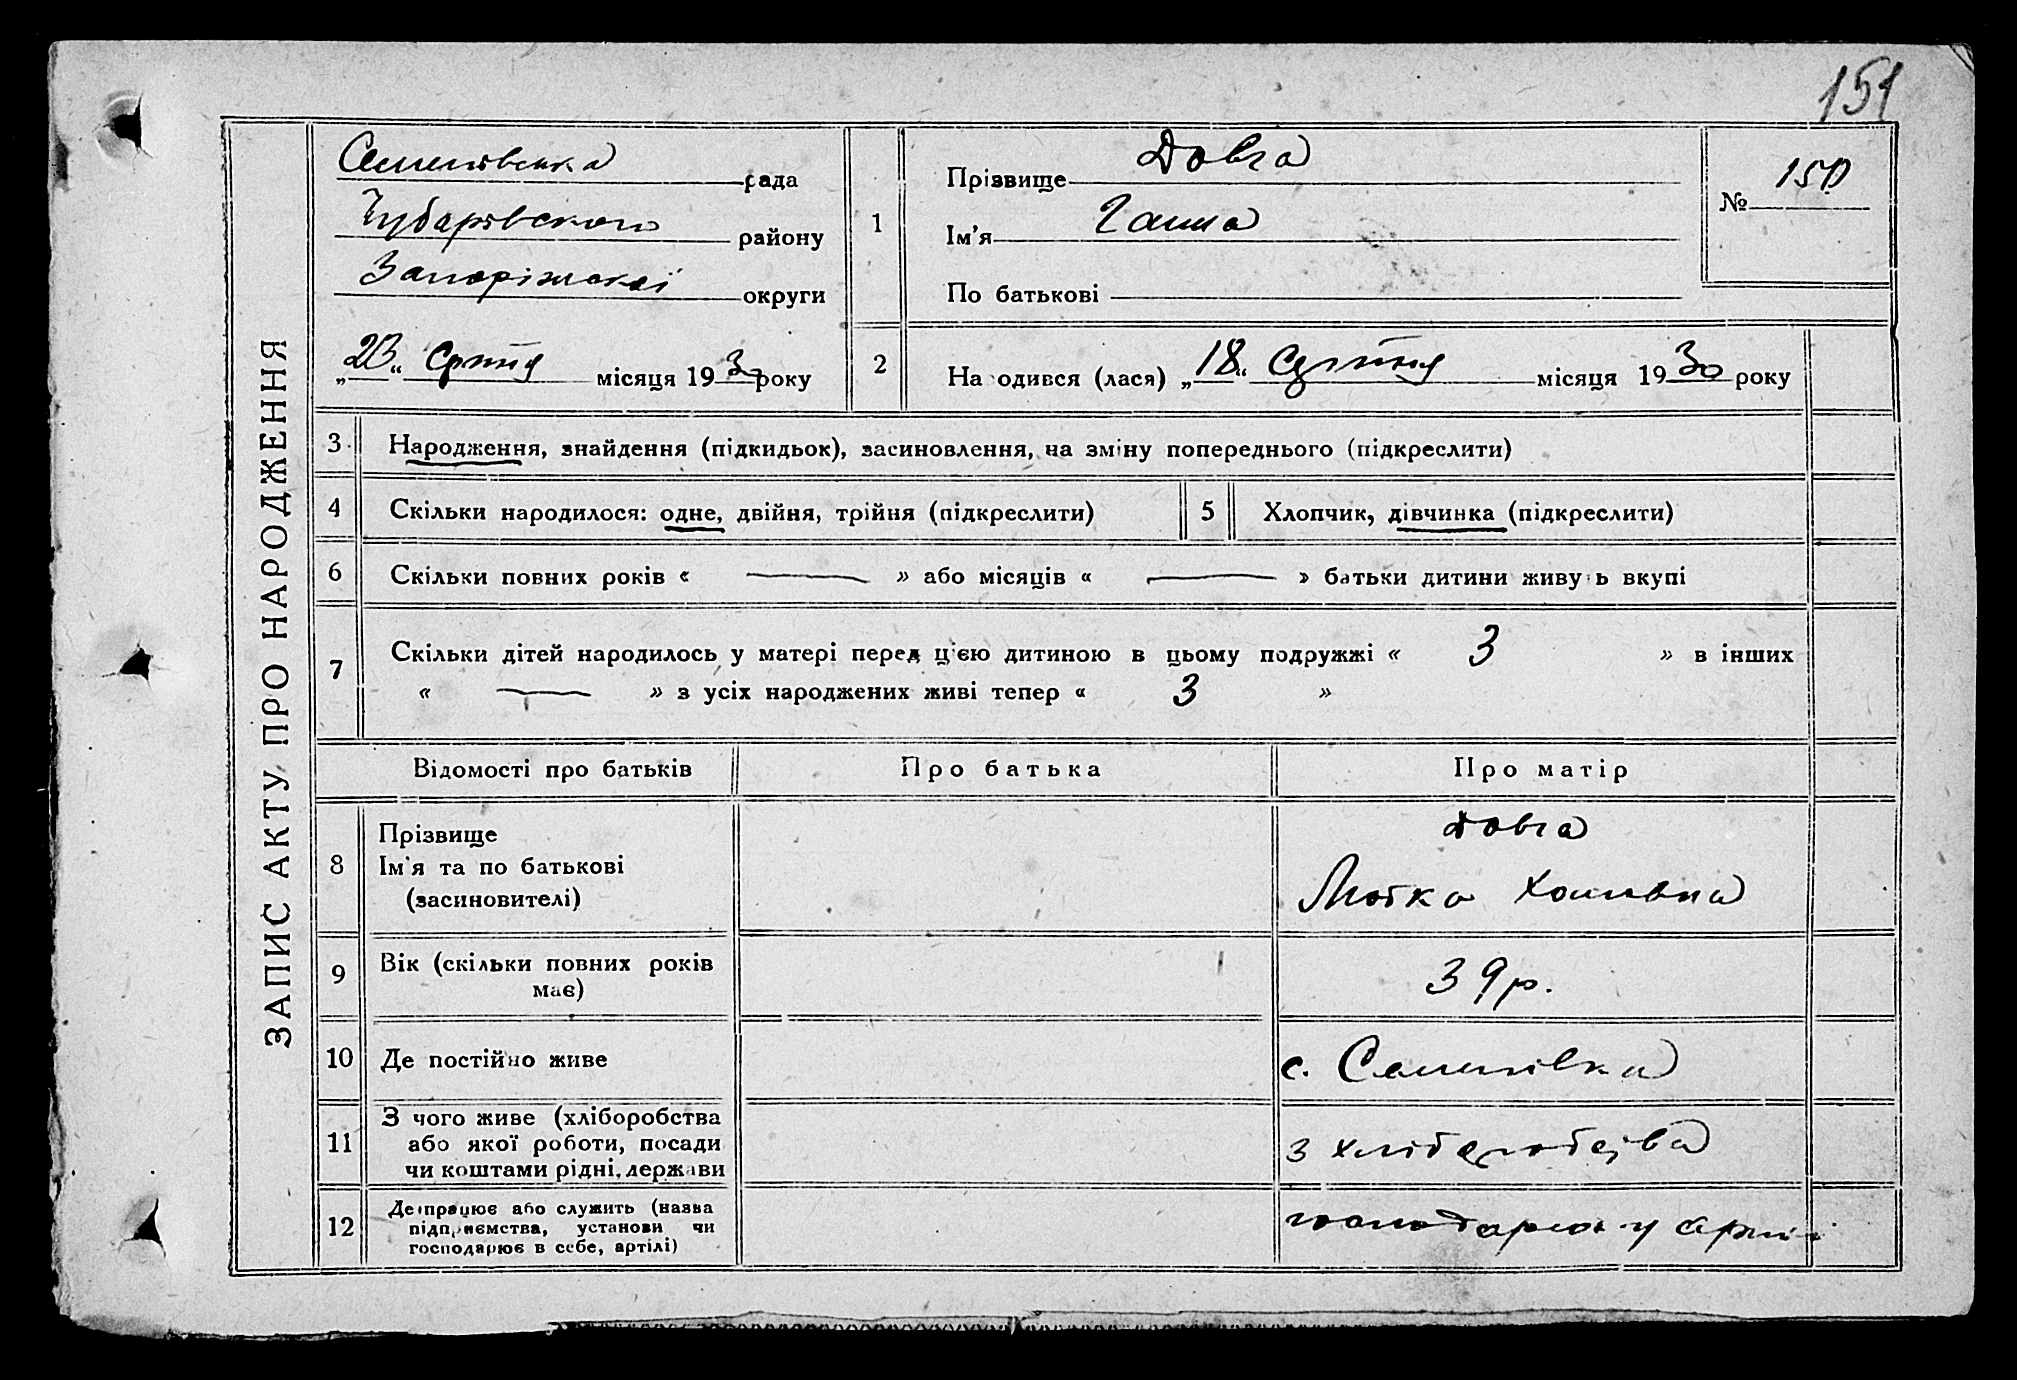 151
ЗАПИС АКТУ ПРО НАРОДЖЕННЯ
Семенівська рада
Чубарівського району
Запоріжської округи
„23“ Серпня місяця 1930 року
1
Прізвище Довга
Ім'я Ганна
По батькові
№ 150
2
Народився (лася) „18“ Серпня місяця 1930 року
3 Народження, знайдення (підкидьок), засиновлення, на зміну попереднього (підкреслити)
4 Скільки народилося: одне, двійня, трійня (підкреслити)
5 Хлопчик, дівчинка (підкреслити)
6 Скільки повних років « — » або місяців « — » батьки дитини живуть вкупі
7 Скільки дітей народилось у матері перед цією дитиною в цьому подружжі « 3 » в інших
« — » з усіх народжених живі тепер « 3 »
Відомості про батьків Про батька Про матір
8 Прізвище
Ім'я та по батькові
(засиновителі)
Довга
Мотка Хомівна
9 Вік (скільки повних років
має)
39 р.
10 Де постійно живе с. Семенівка
11 З чого живе (хліборобства
або якої роботи, посади
чи коштами рідні, держави
з хліборобства
12 Де працює або служить (назва
підприємства, установи чи
господарює в себе, артілі)
господарює у артілі